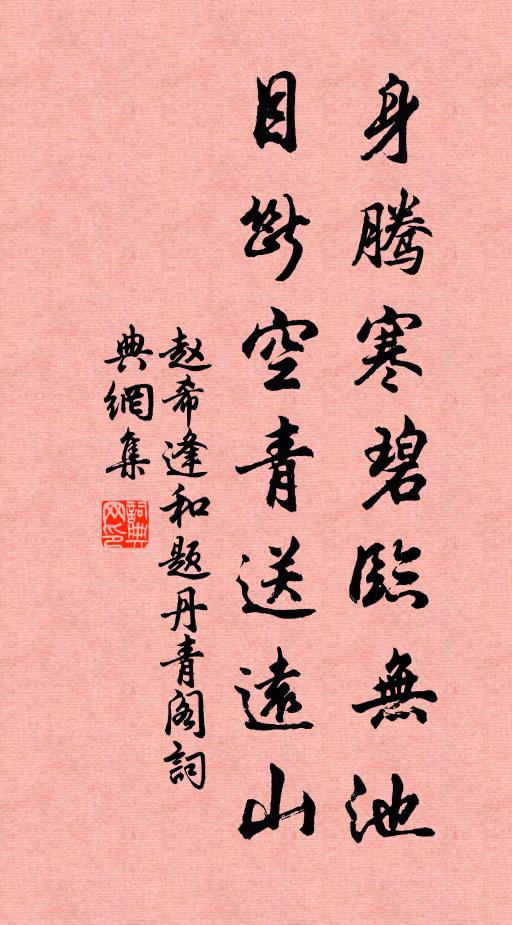 身騰寒碧臨無池
目斷空青送遠山
赵希逢和题丹青阁詞
典網集
詞典网印